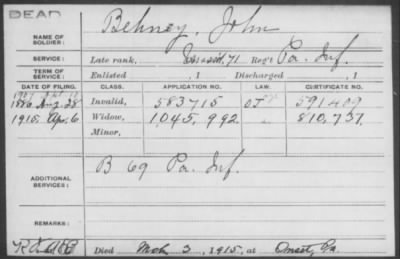 DEAD
Behney, John
NAME OF SOLDIER:
SERVICE: Late rank, Unassd, 71 Reg't Pa. Inf.
TERM OF SERVICE: Enlisted , 1 Discharged , 1
DATE OF FILING. CLASS. APPLICATION NO. LAW. CERTIFICATE NO.
1886 Aug. 28 Invalid, 583715 591409
1915 Apr. 6 Widow, 1.045.992 810,737
Minor,
ADDITIONAL SERVICES: B 69 Pa. Inf.
REMARKS:
Died Mch 3, 1915, at Pa